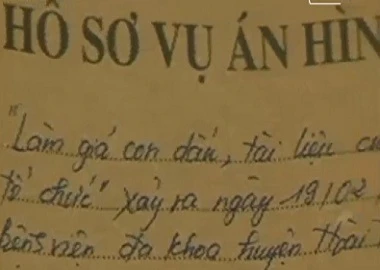 HỒ SƠ VỤ ÁN HÌN
"Làm giả con dấu, tài liệu c
tổ chức" xảy ra ngày 19/02
bệnh viện đa khoa huyện Hoài